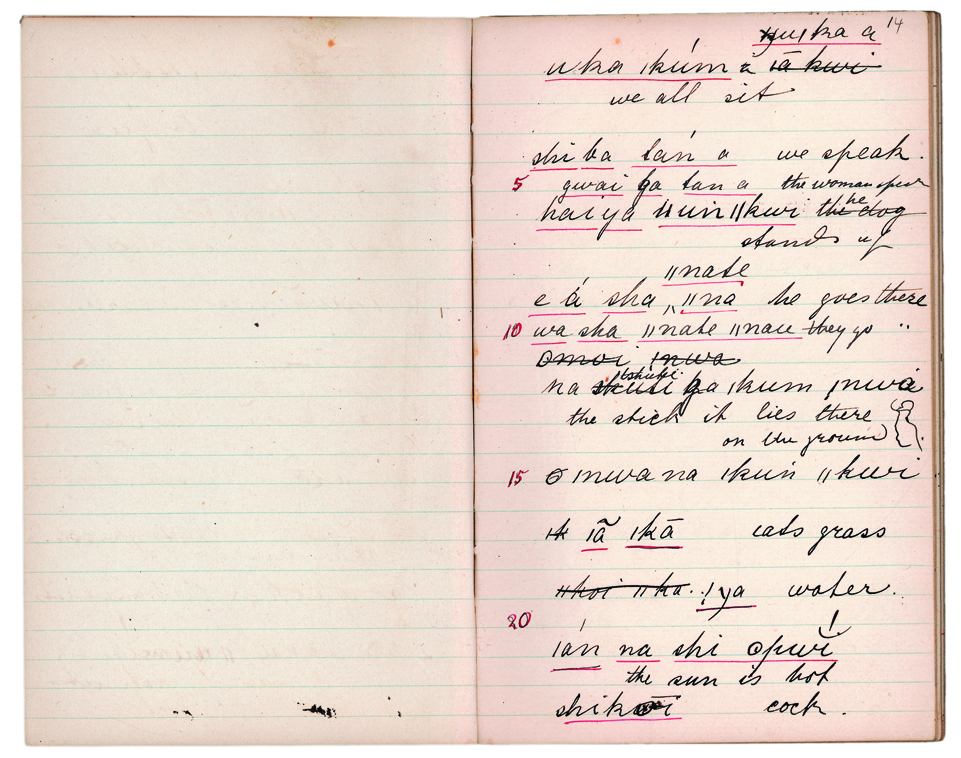 14
ǀka a
uka ǀkúm a ǀā kwi
we all sit
shi ba tán a we speak.
5 gwai ga tan a the woman speaks
haiya ǁun ǁkwi the dog he
stands up
ǁnate
e á sha ǁna he goes there
10 wa sha ǁnate ǁnau they go "
ʘmoi ǀnwa
na tshutsi ga ǀkum ǀnwá
the stick it lies there
on the ground
15 ʘmwa na ǀkuń ǁkwi
ǀk ǀã ǀkā eats grass
ǁkoi ǁka. ǃya water.
20
ǀán na shi ʘpwĭ
the sun is hot
shik i cock.